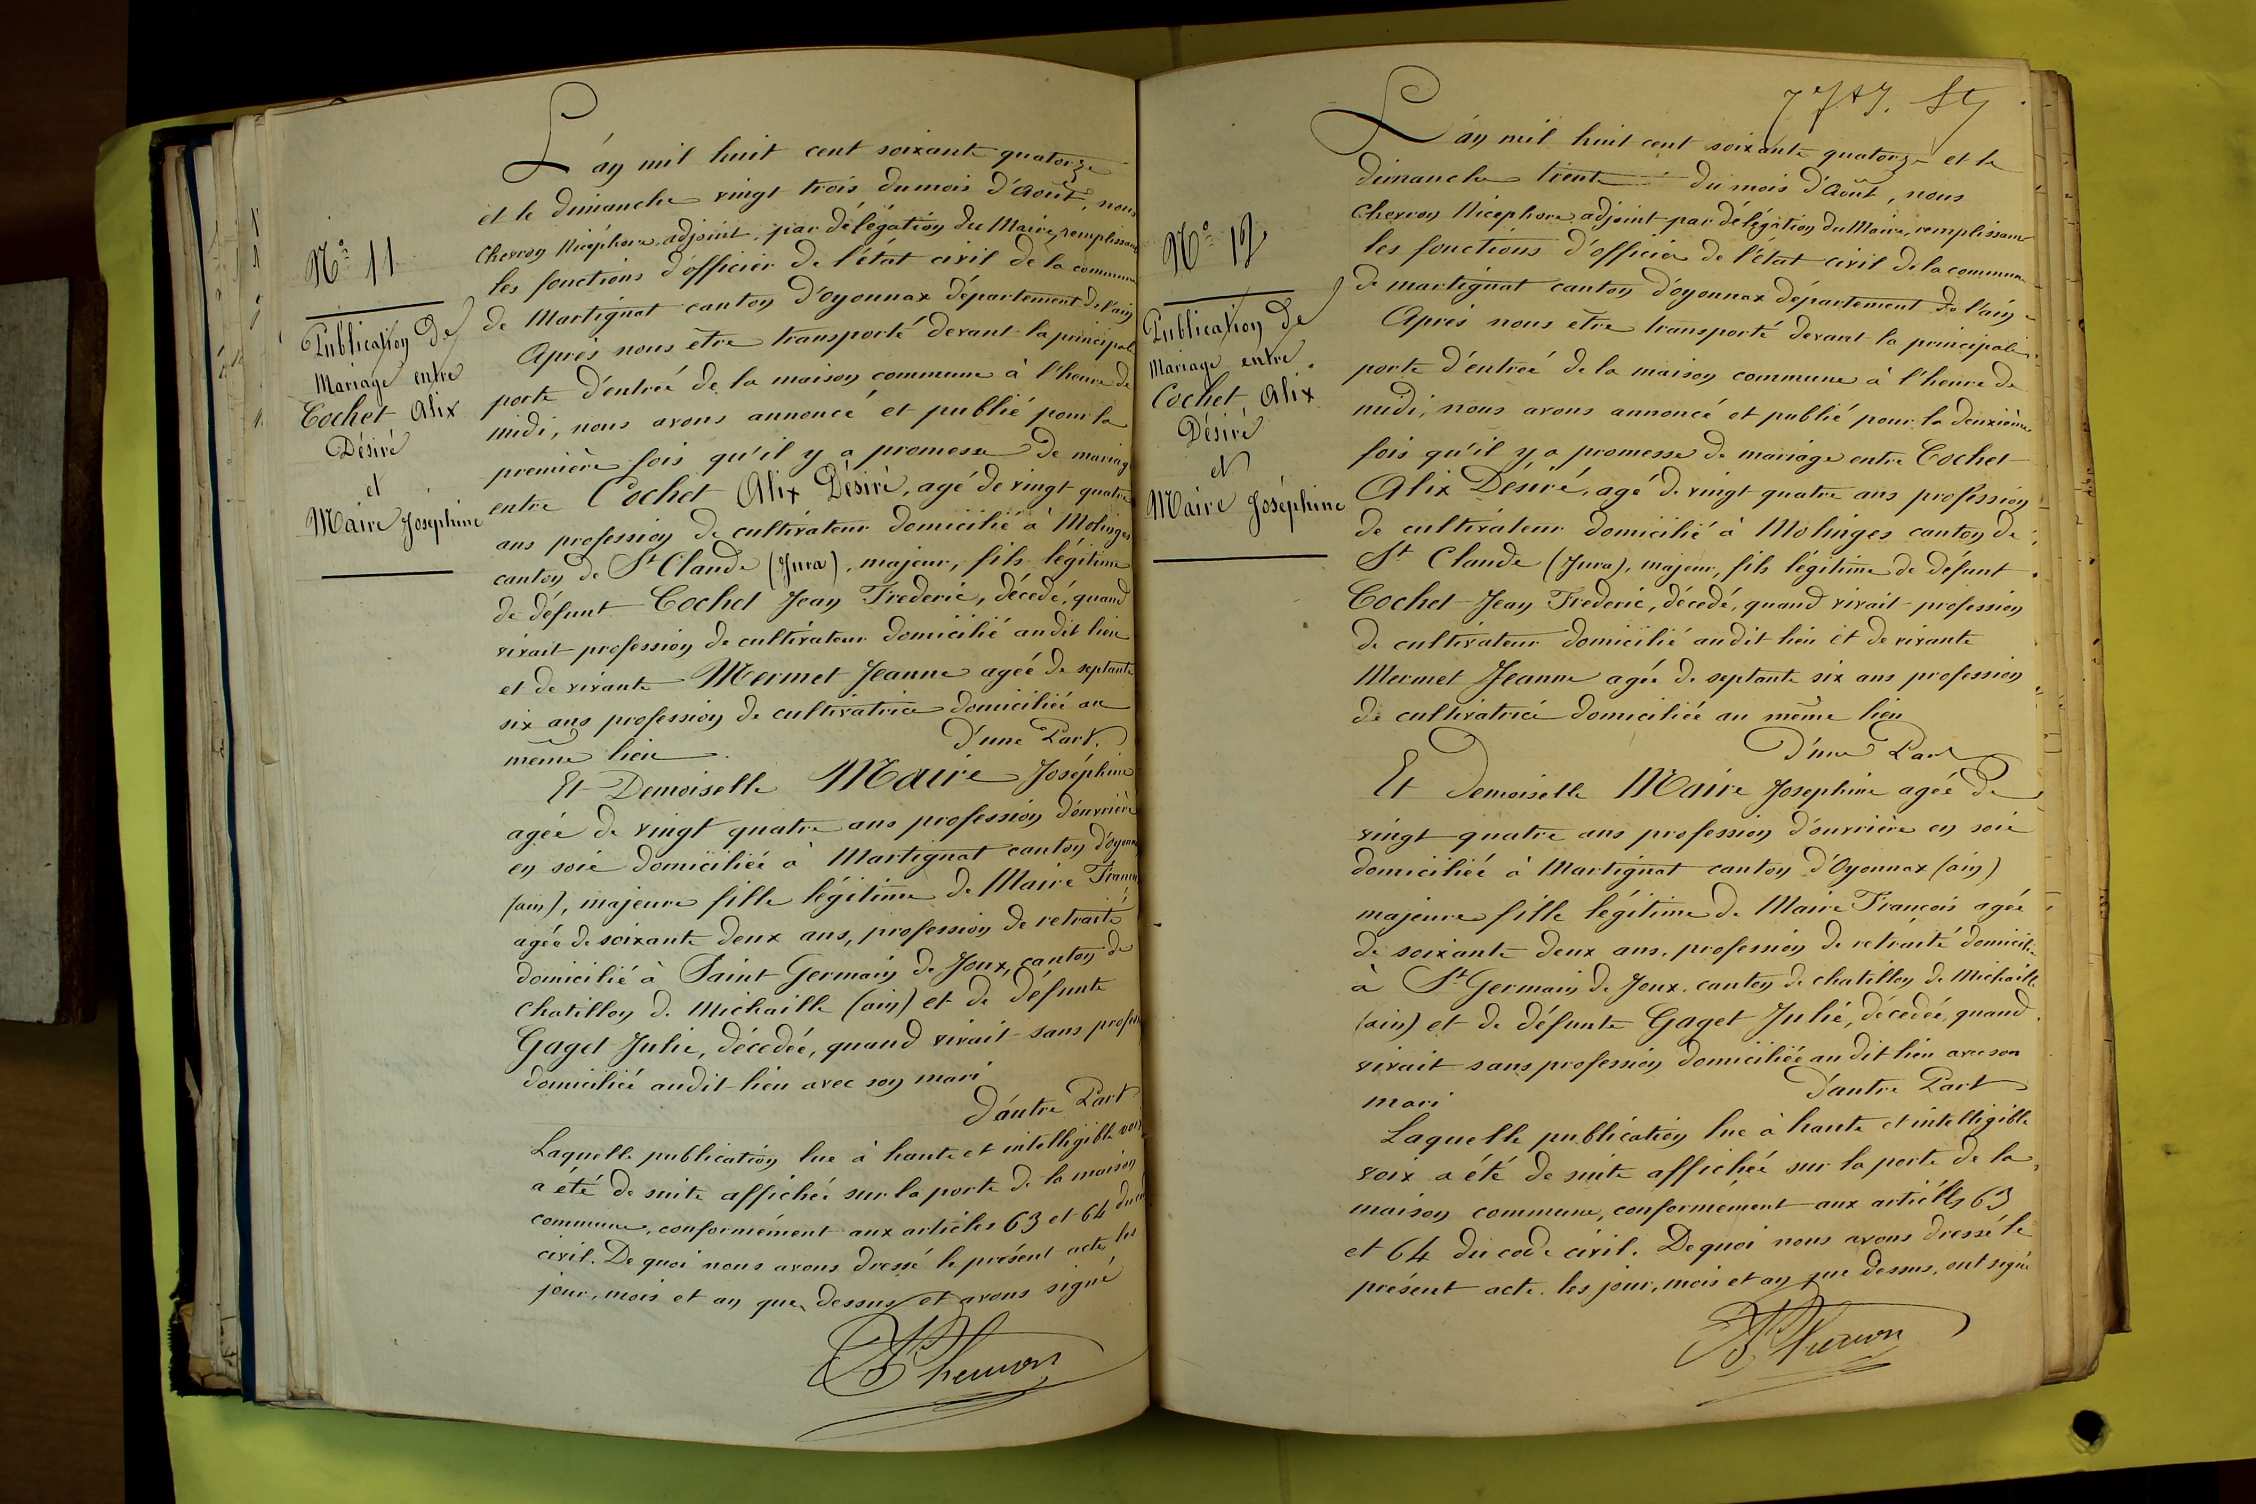 N° 11
Publication de
Mariage entre
Cochet Alix
Désiré
et
Maire Joséphine
L'an mil huit cent soixante quatorze
et le dimanche vingt trois du mois d'Août, nous
Chevron Nicéphore adjoint, par délégation du Maire, remplissant
les fonctions d'officier de l'état civil de la commune
de Martignat canton d'oyonnax département de l'ain
Après nous être transporté devant la principale
porte d'entrée de la maison commune à l'heure de
midi, nous avons annoncé et publié pour la
première fois qu'il y a promesse de mariage
entre Cochet Alix Désiré, agé de vingt quatre
ans profession de cultivateur domicilié à Molinges
canton de St Claude (Jura), majeur, fils légitime
de défunt Cochet Jean Frederic, décedé, quand
vivait profession de cultivateur domicilié audit lieu
et de vivante Mermet Jeanne agée de septante
six ans profession de cultivatrice domiciliée au
même lieu d'une Part.
Et Demoiselle Maire Joséphine
agée de vingt quatre ans profession d'ouvrière
en soie domiciliée à Martignat canton d'oyonn
(ain), majeure fille légitime de Maire Francois
agée de soixante deux ans, profession de retraité
domicilié à Saint Germain de Joux, canton de
Chatillon de Michaille (ain) et de défunte
Gaget Julie, décedée, quand vivait sans profess
domiciliée audit lieu avec son mari
D'autre Part
Laquelle publication lue à haute et intelligible voix
a été de suite affichée sur la porte de la maison
commune, conformément aux articles 63 et 64 du code
civil. De quoi nous avons dressé le présent acte, les
jour, mois et an que dessus et avons signé
Chevron
N° 12
Publication de
Mariage entre
Cochet Alix
Désiré
et
Maire Joséphine
L'an mil huit cent soixante quatorze et le
dimanche trente du mois d'Août, nous
Chevron Nicéphore adjoint par délégation du Maire, remplissant
les fonctions d'officier de l'état civil de la commune
de martignat canton d'oyonnax département de l'ain
Après nous être transporté devant la principale
porte d'entrée de la maison commune à l'heure de
midi, nous avons annoncé et publié pour la deuxième
fois qu'il y a promesse de mariage entre Cochet
Alix Désiré, agé de vingt quatre ans profession
de cultivateur domicilié à Molinges canton de
St Claude (Jura), majeur, fils légitime de défunt
Cochet Jean Frederic, décedé, quand vivait profession
de cultivateur domicilié audit lieu et de vivante
Mermet Jeanne agée de septante six ans profession
de cultivatrice domiciliée au même lieu
D'une Part
Et Demoiselle Maire Josephine agée de
vingt quatre ans profession d'ouvrière en soie
domiciliée à Martignat canton d'Oyonnax (ain)
majeure fille légitime de Maire Francois agée
de soixante deux ans, profession de retraité domicilié
à St Germain de Joux, canton de chatillon de Michaille
(ain) et de défunte Gaget Julie, décedée, quand
vivait sans profession domiciliée au dit lieu avec son
mari D'autre Part
Laquelle publication lue à haute et intelligible
voix a été de suite affichée sur la porte de la
maison commune, conformément aux articles 63
et 64 du code civil. De quoi nous avons dressé le
présent acte, les jour, mois et an que dessus, ont signé
Chevron